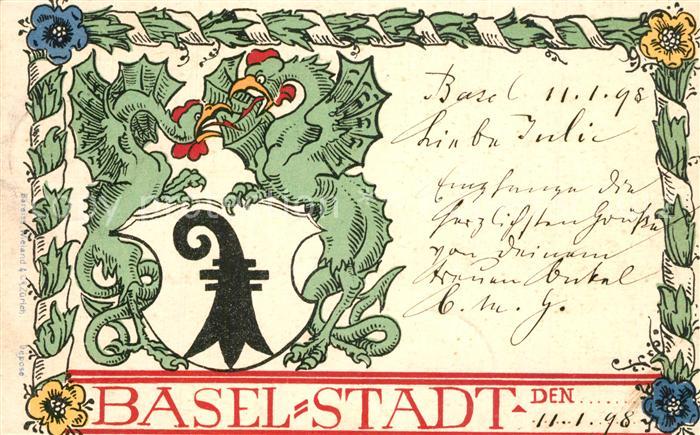 Basel 11.1.98
Liebe Julie
Empfange die
herzlichsten Grüße
von deinem
treuen Onkel
C. M. G.
BASEL=STADT· DEN ......
11.1.98
Wieland & Cº Zürich. Déposé